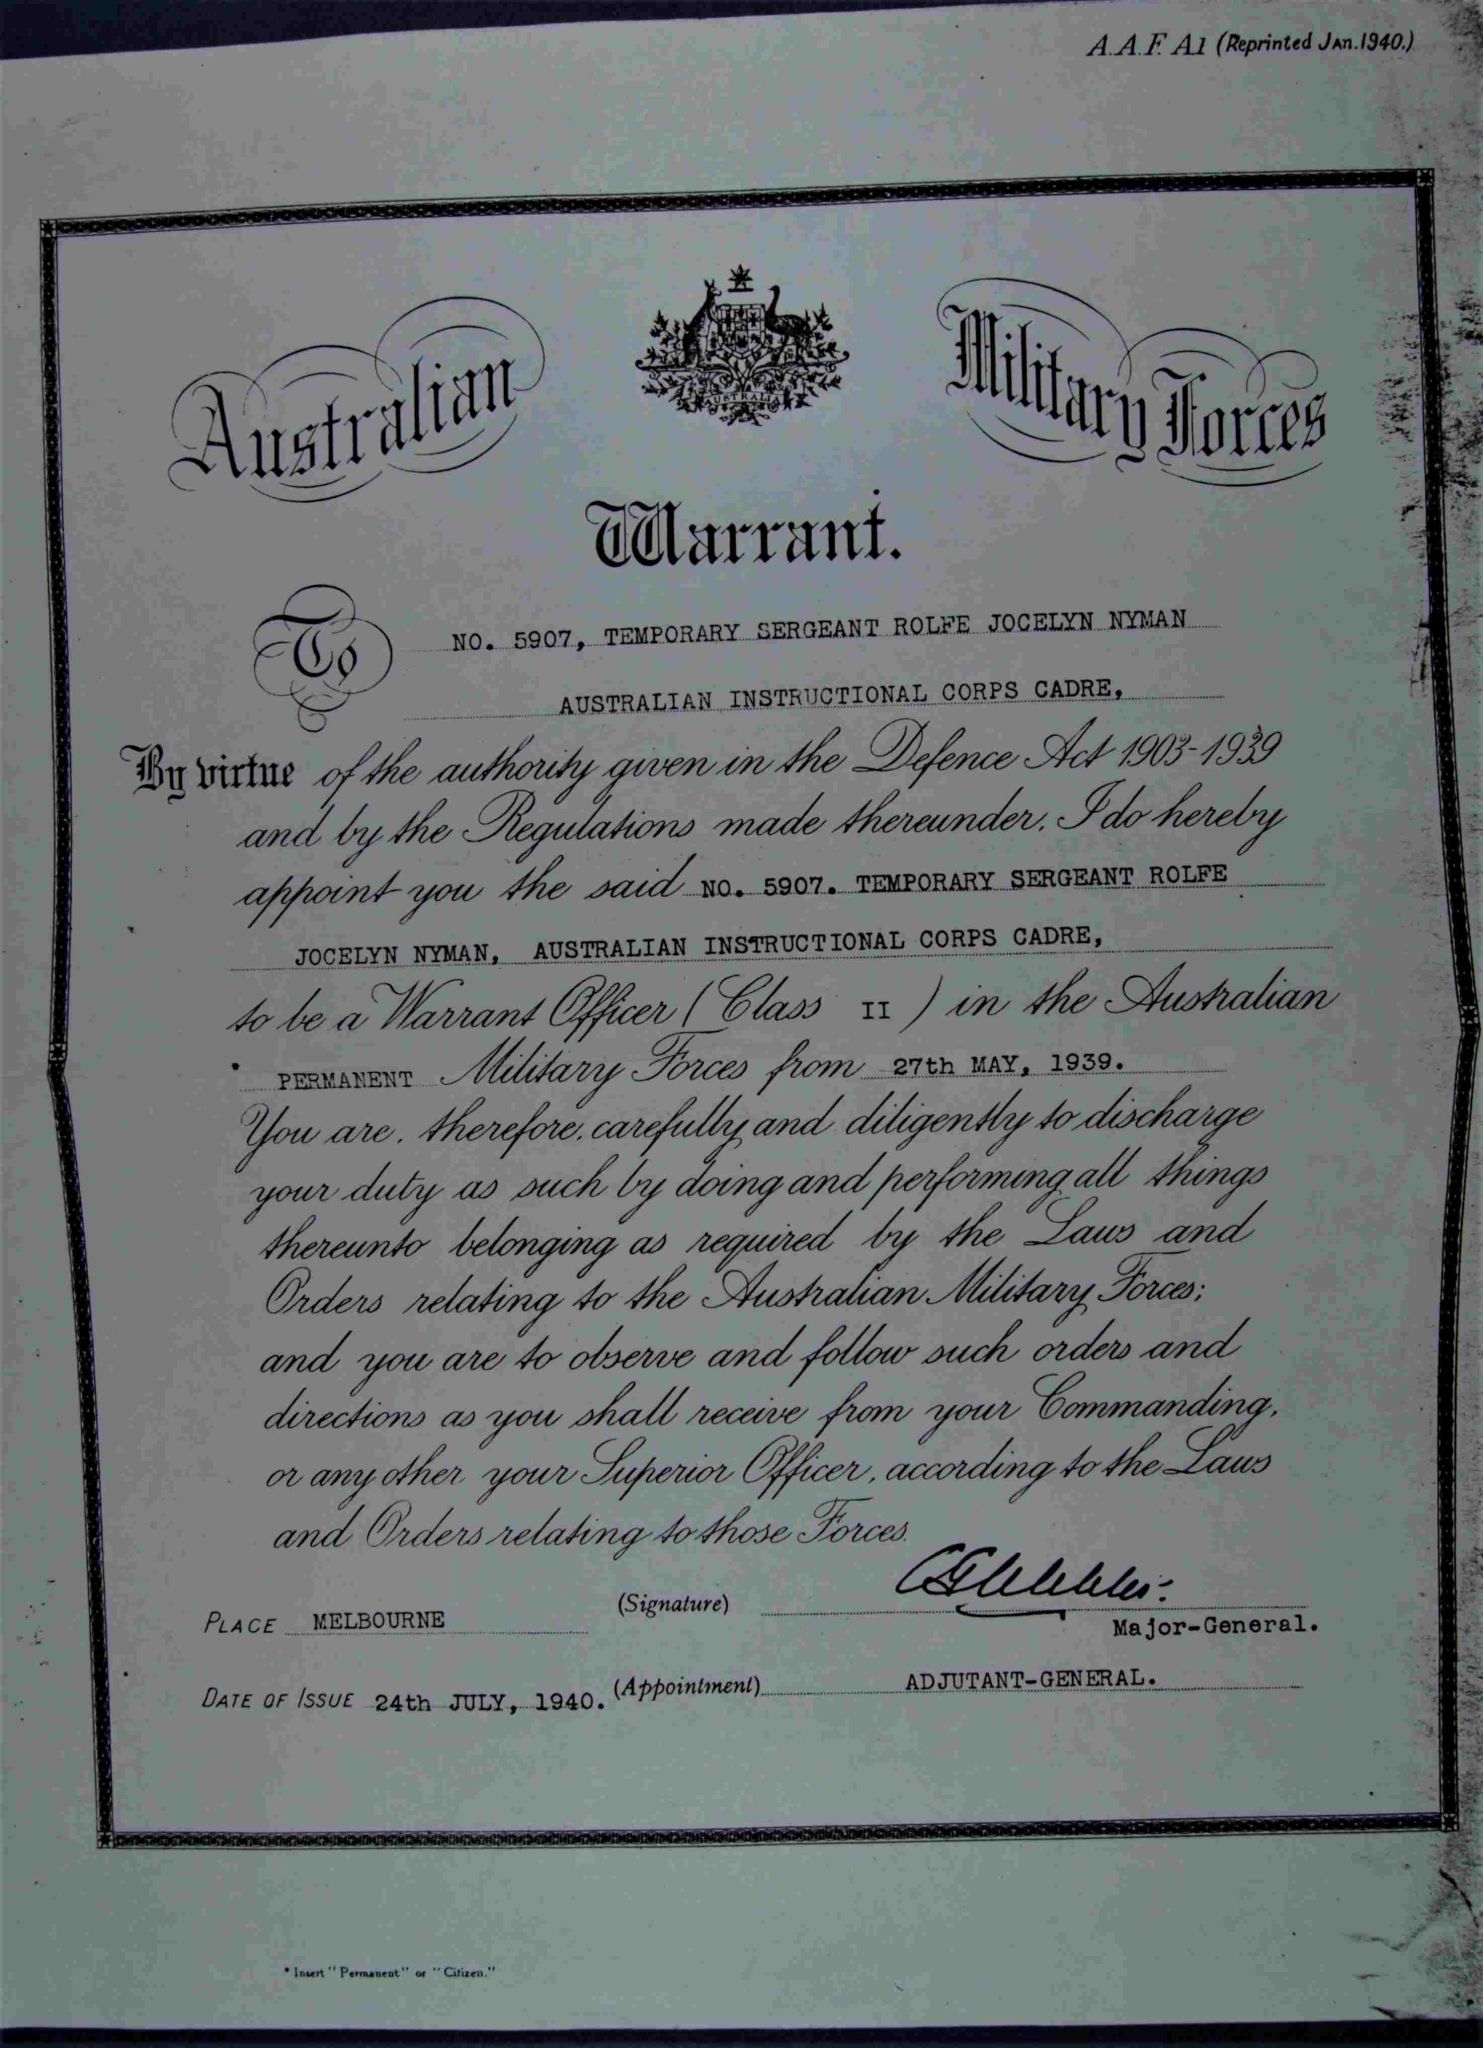 A.A.F. A1 (Reprinted JAN. 1940.)
Australian Military Forces
AUSTRALIA
Warrant.
To NO. 5907, TEMPORARY SERGEANT ROLFE JOCELYN NYMAN
AUSTRALIAN INSTRUCTIONAL CORPS CADRE,
By virtue of the authority given in the Defence Act 1903-1939
and by the Regulations made thereunder, I do hereby
appoint you the said NO. 5907. TEMPORARY SERGEANT ROLFE
JOCELYN NYMAN, AUSTRALIAN INSTRUCTIONAL CORPS CADRE,
to be a Warrant Officer (Class II) in the Australian
* PERMANENT Military Forces from 27th MAY, 1939.
You are, therefore, carefully and diligently to discharge
your duty as such by doing and performing all things
thereunto belonging as required by the Laws and
Orders relating to the Australian Military Forces;
and you are to observe and follow such orders and
directions as you shall receive from your Commanding,
or any other your Superior Officer, according to the Laws
and Orders relating to those Forces.
(Signature)
PLACE MELBOURNE
Major-General.
DATE OF ISSUE 24th JULY, 1940. (Appointment) ADJUTANT-GENERAL.
* Insert "Permanent" or "Citizen."